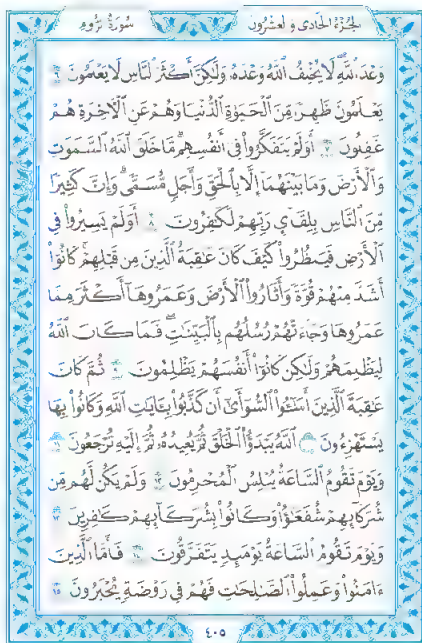 الجزء الحادي والعشرون سورة الروم
وَعْدَ ٱللَّهِ لَا يُخْلِفُ ٱللَّهُ وَعْدَهُۥ وَلَٰكِنَّ أَكْثَرَ ٱلنَّاسِ لَا يَعْلَمُونَ ٦
يَعْلَمُونَ ظَٰهِرًا مِّنَ ٱلْحَيَوٰةِ ٱلدُّنْيَا وَهُمْ عَنِ ٱلْءَاخِرَةِ هُمْ
غَٰفِلُونَ ٧ أَوَلَمْ يَتَفَكَّرُوا۟ فِىٓ أَنفُسِهِم مَّا خَلَقَ ٱللَّهُ ٱلسَّمَٰوَٰتِ
وَٱلْأَرْضَ وَمَا بَيْنَهُمَآ إِلَّا بِٱلْحَقِّ وَأَجَلٍ مُّسَمًّى وَإِنَّ كَثِيرًا
مِّنَ ٱلنَّاسِ بِلِقَآئِ رَبِّهِمْ لَكَٰفِرُونَ ٨ أَوَلَمْ يَسِيرُوا۟ فِى
ٱلْأَرْضِ فَيَنظُرُوا۟ كَيْفَ كَانَ عَٰقِبَةُ ٱلَّذِينَ مِن قَبْلِهِمْ كَانُوٓا۟
أَشَدَّ مِنْهُمْ قُوَّةً وَأَثَارُوا۟ ٱلْأَرْضَ وَعَمَرُوهَآ أَكْثَرَ مِمَّا
عَمَرُوهَا وَجَآءَتْهُمْ رُسُلُهُم بِٱلْبَيِّنَٰتِ فَمَا كَانَ ٱللَّهُ
لِيَظْلِمَهُمْ وَلَٰكِن كَانُوٓا۟ أَنفُسَهُمْ يَظْلِمُونَ ٩ ثُمَّ كَانَ
عَٰقِبَةَ ٱلَّذِينَ أَسَٰٓـُٔوا۟ ٱلسُّوٓأَىٰٓ أَن كَذَّبُوا۟ بِـَٔايَٰتِ ٱللَّهِ وَكَانُوا۟ بِهَا
يَسْتَهْزِءُونَ ١٠ ٱللَّهُ يَبْدَؤُا۟ ٱلْخَلْقَ ثُمَّ يُعِيدُهُۥ ثُمَّ إِلَيْهِ تُرْجَعُونَ ١١
وَيَوْمَ تَقُومُ ٱلسَّاعَةُ يُبْلِسُ ٱلْمُجْرِمُونَ ١٢ وَلَمْ يَكُن لَّهُم مِّن
شُرَكَآئِهِمْ شُفَعَٰٓؤُا۟ وَكَانُوا۟ بِشُرَكَآئِهِمْ كَٰفِرِينَ ١٣
وَيَوْمَ تَقُومُ ٱلسَّاعَةُ يَوْمَئِذٍ يَتَفَرَّقُونَ ١٤ فَأَمَّا ٱلَّذِينَ
ءَامَنُوا۟ وَعَمِلُوا۟ ٱلصَّٰلِحَٰتِ فَهُمْ فِى رَوْضَةٍ يُحْبَرُونَ ١٥
٤٠٥